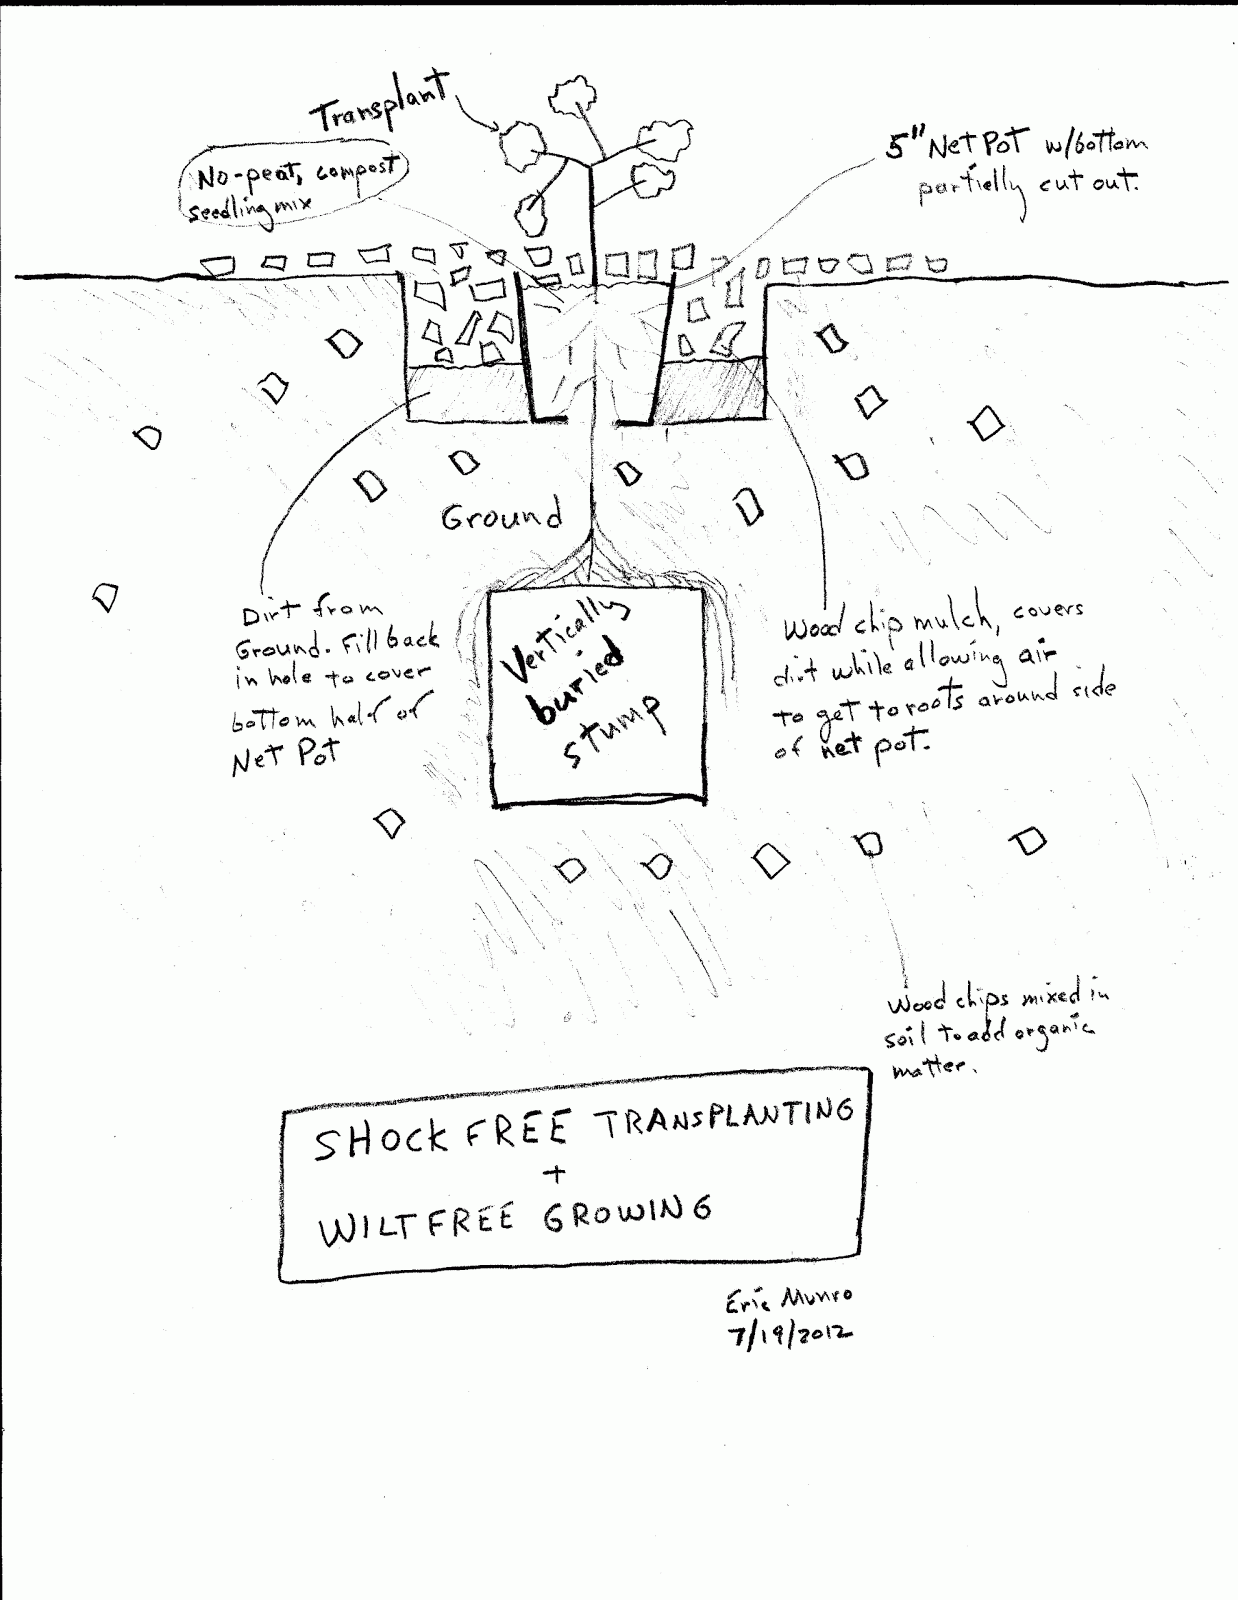 Transplant
No-peat, compost
seedling mix
5" Net Pot w/bottom
partielly cut out.
Ground
Dirt from
Ground. Fill back
in hole to cover
bottom half of
Net Pot
Vertically
buried
stump
Wood chip mulch, covers
dirt while allowing air
to get to roots around side
of net pot.
Wood chips mixed in
soil to add organic
matter.
SHOCK FREE TRANSPLANTING
+
WILT FREE GROWING
Eric Munro
7/19/2012